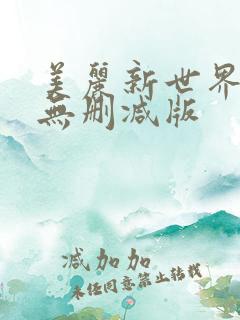 美麗新世界
無刪減版
减加加
未经同意禁止转载